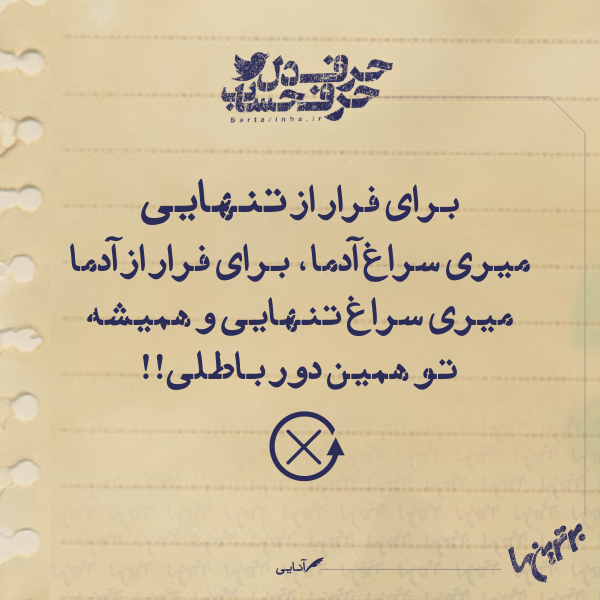 حرف دل
حرف حساب
Bartarinha.ir
برای فرار از تنهایی
میری سراغ آدما، برای فرار از آدما
میری سراغ تنهایی و همیشه
تو همین دور باطلی!!
آنایی
برترین‌ها